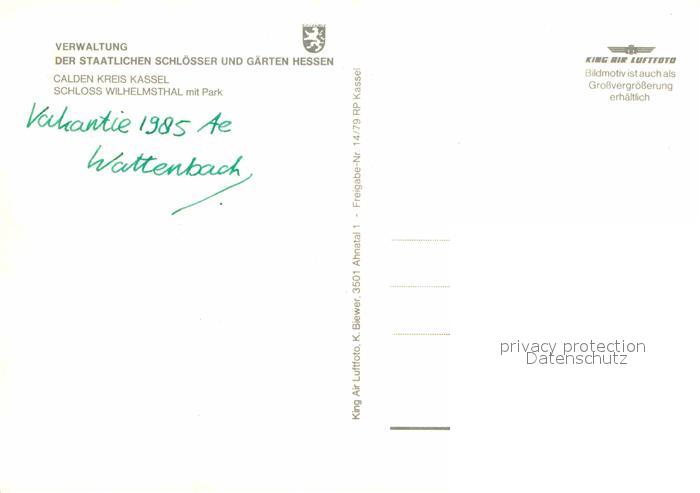 VERWALTUNG
DER STAATLICHEN SCHLÖSSER UND GÄRTEN HESSEN
CALDEN KREIS KASSEL
SCHLOSS WILHELMSTHAL mit Park
Vakantie 1985 Ae
Wattenbach
King Air Luftfoto, K. Biewer, 3501 Ahnatal 1 - Freigabe-Nr. 14/79 RP Kassel
KING AIR LUFTFOTO
Bildmotiv ist auch als
Großvergrößerung
erhältlich
privacy protection
Datenschutz